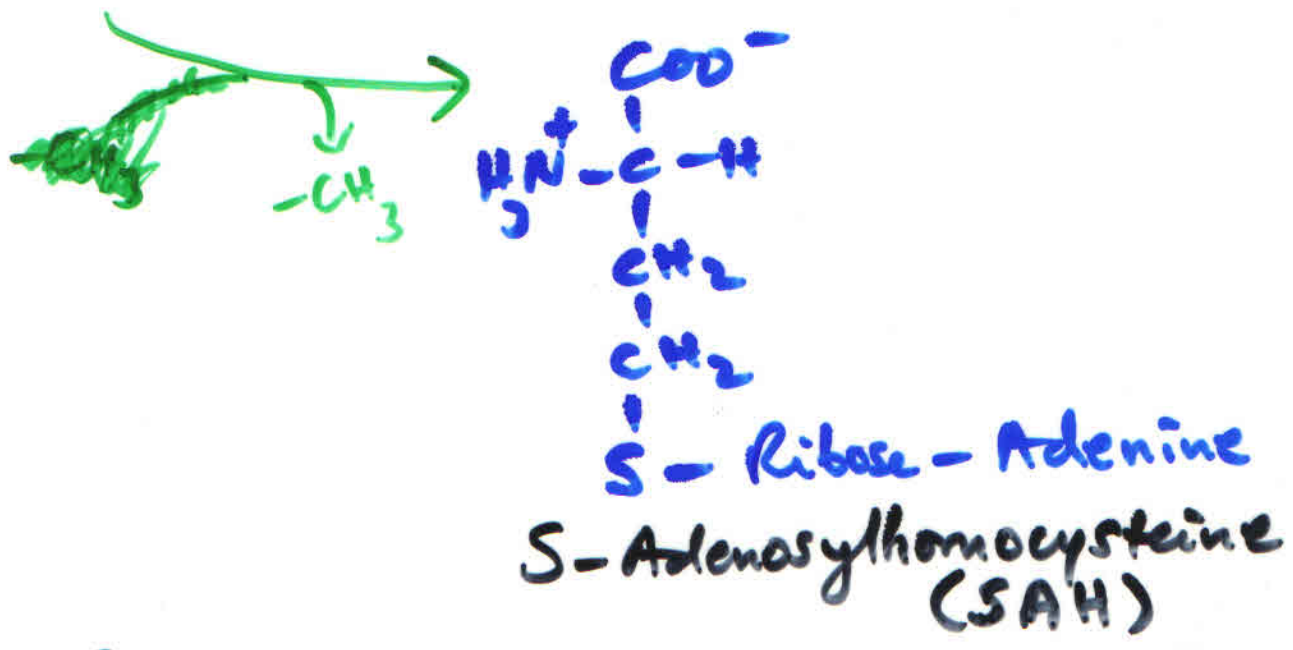 COO⁻
H₃N⁺ - C - H
-CH₃
CH₂
CH₂
S - Ribose - Adenine
S-Adenosylhomocysteine
(SAH)